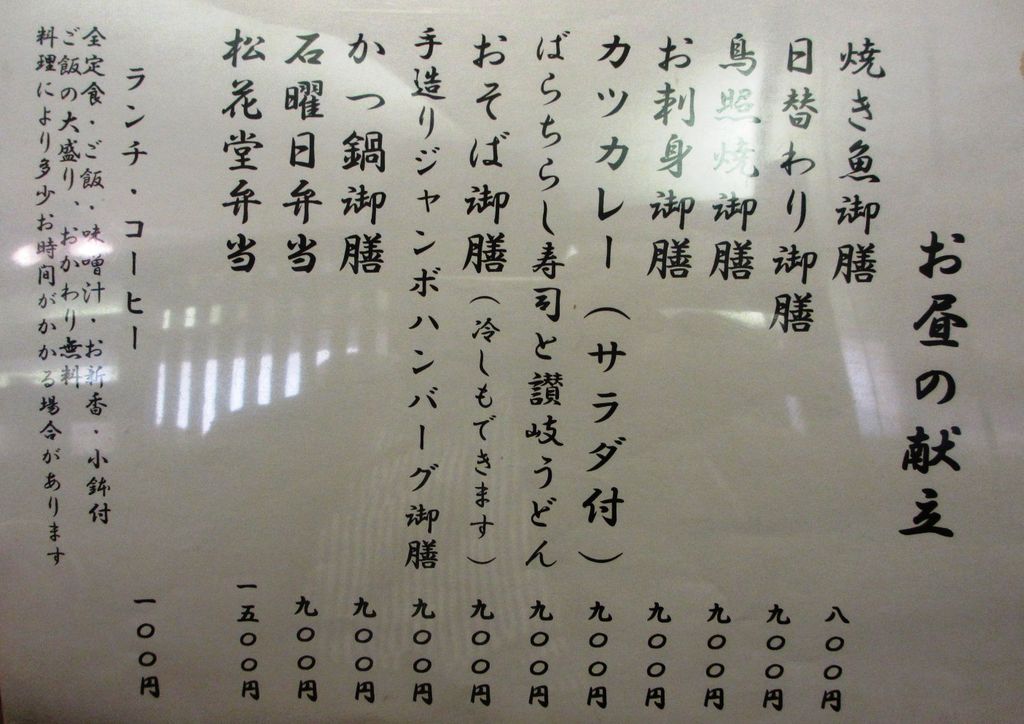 お昼の献立
焼き魚御膳 八〇〇円
日替わり御膳 九〇〇円
鳥照焼御膳 九〇〇円
お刺身御膳 九〇〇円
カツカレー（サラダ付） 九〇〇円
ばらちらし寿司と讃岐うどん 九〇〇円
おそば御膳（冷しもできます） 九〇〇円
手造りジャンボハンバーグ御膳 九〇〇円
かつ鍋御膳 九〇〇円
石曜日弁当 九〇〇円
松花堂弁当 一五〇〇円
ランチ・コーヒー 一〇〇円
全定食・ご飯・味噌汁・お新香・小鉢付
ご飯の大盛り、おかわり無料
料理により多少お時間がかかる場合があります